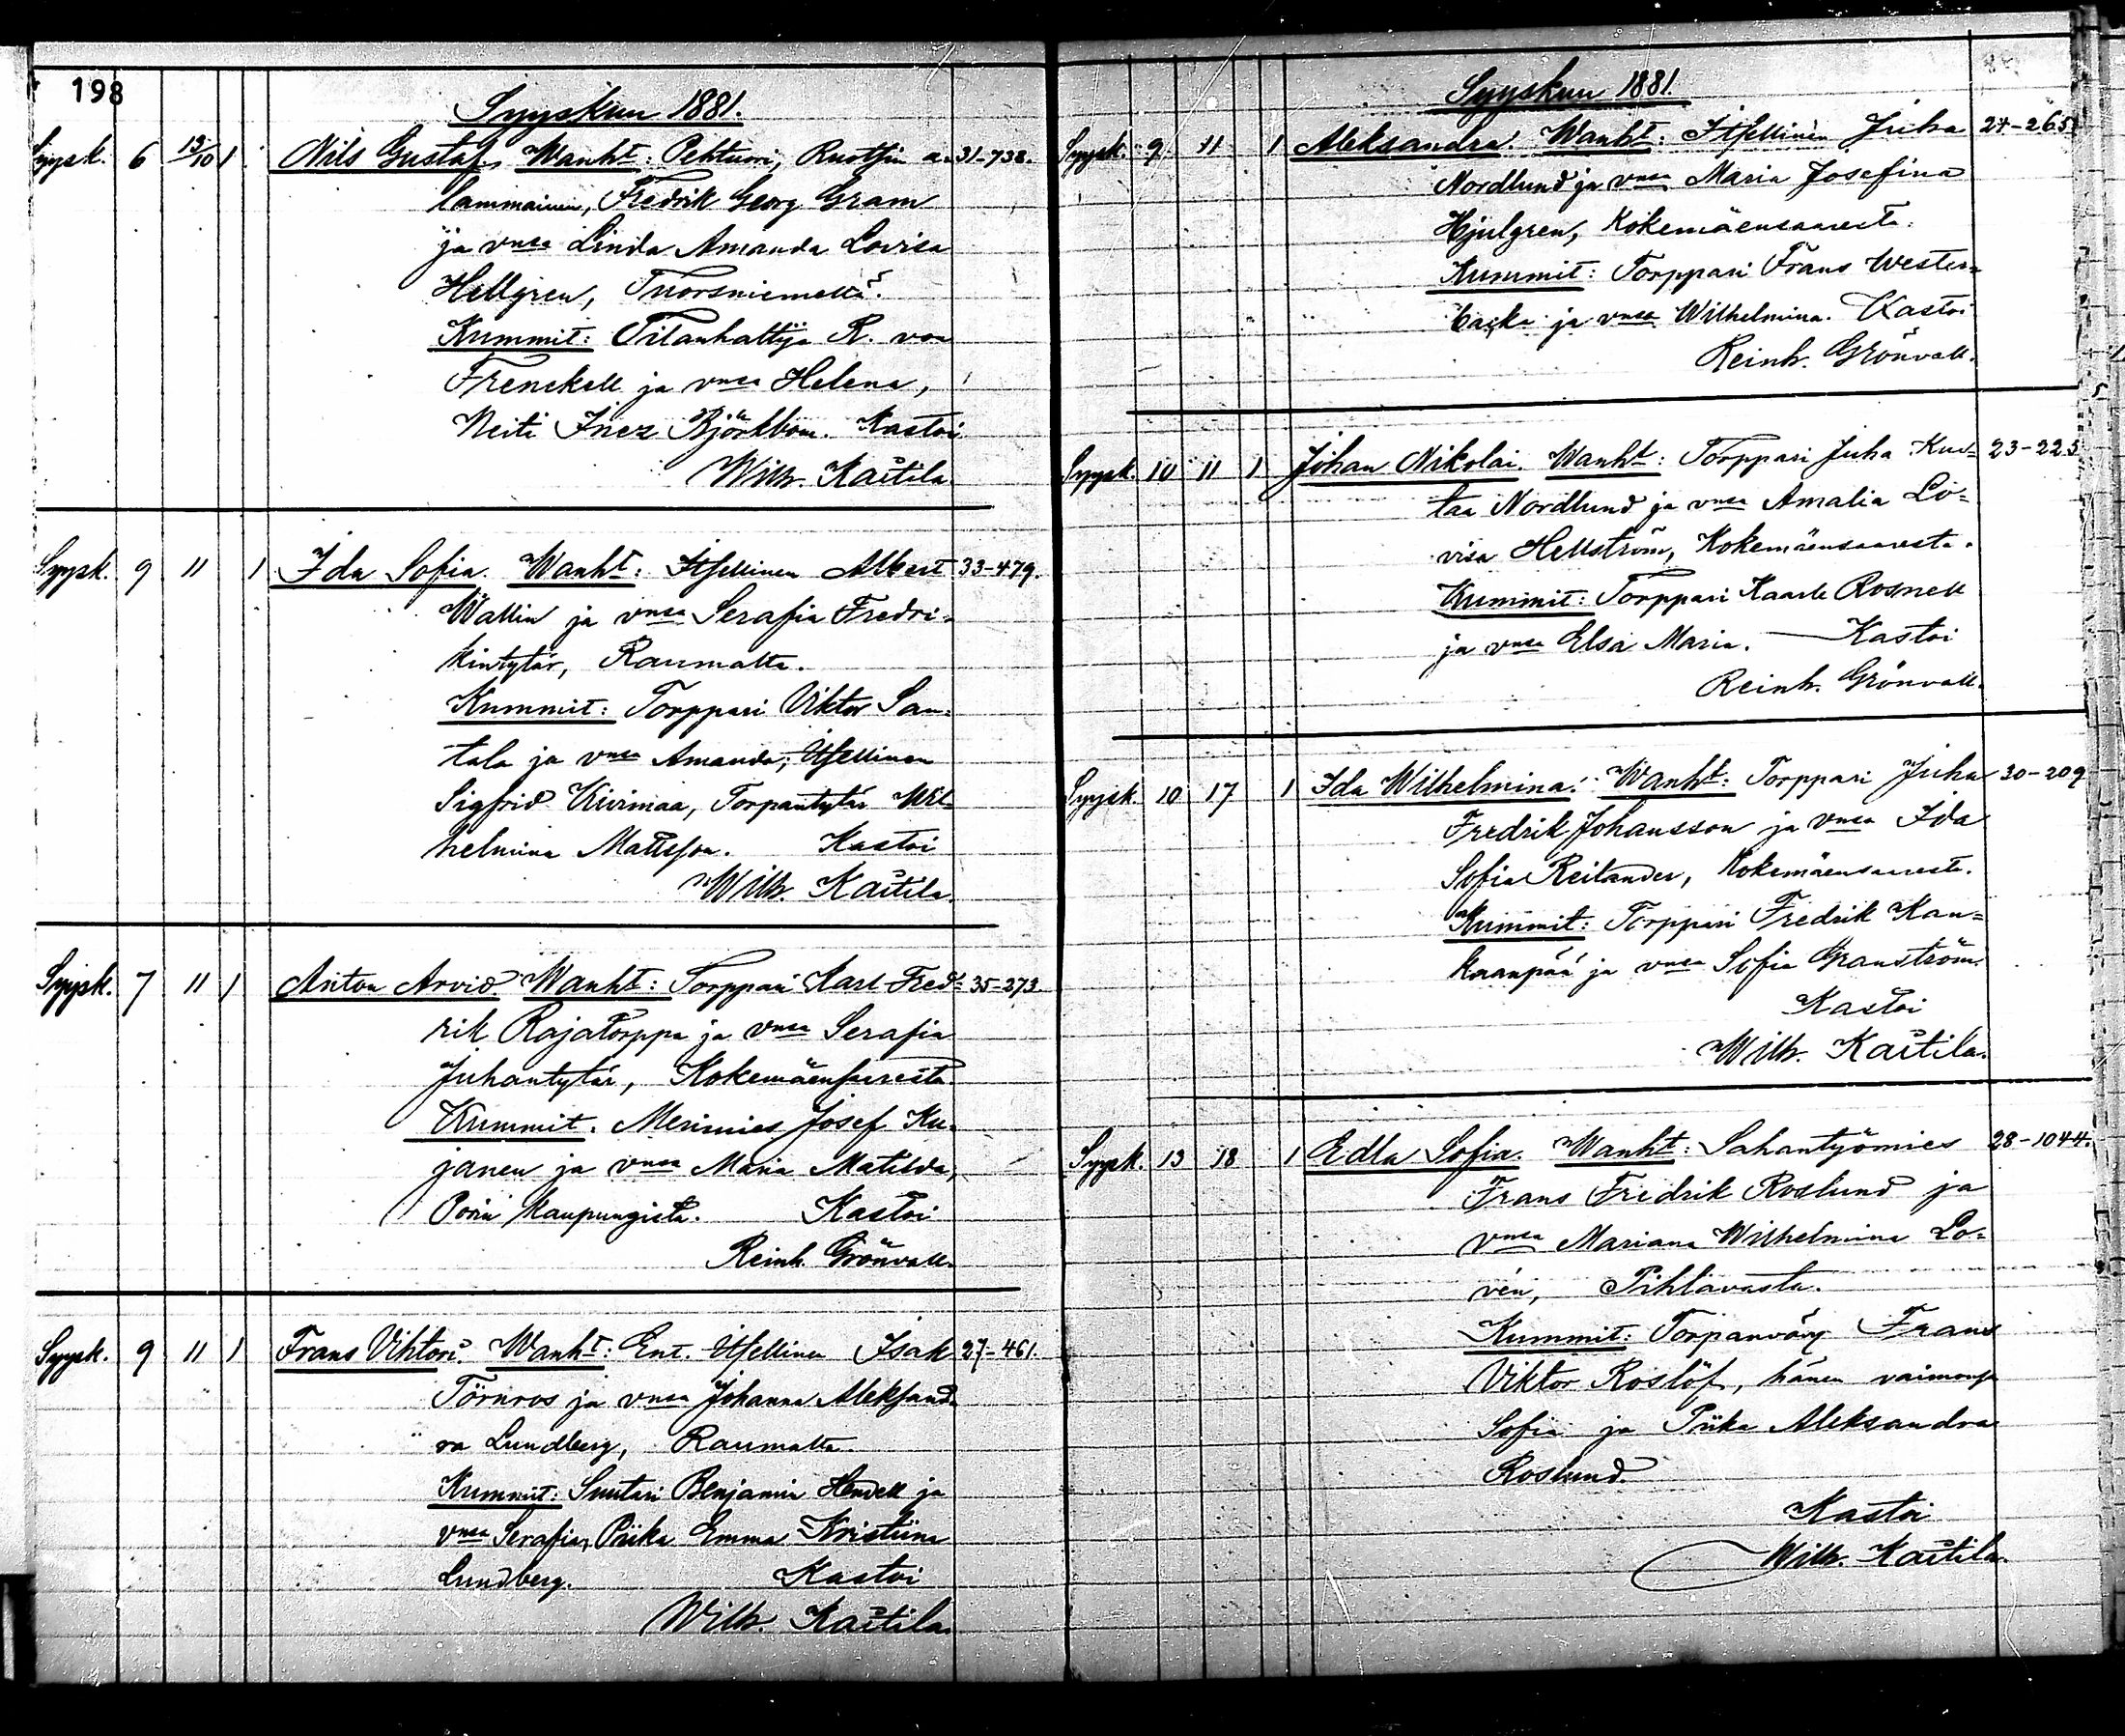 198
Syyskuu 1881.
Syysk. 6 13/10 1 Nils Gustaf. Wanht: Pehtuori, Ruotsin a- 31-738.
lammainen, Fredrik Georg Gram
ja vnsa Linda Amanda Lovisa
Hellgren, Tuorsniemeltä.
Kummit: Tilanhaltija R. von
Frenckell ja vnsa Helena,
Neiti Inez Björkbom. Kastoi
Wilh. Kaitila.
Syysk. 9 11 1 Ida Sofia. Wanht: Itsellinen Albert 33-479.
Wallin ja vnsa Serafia Fredri-
kintytär, Raumalta.
Kummit: Torppari Viktor San-
tala ja vnsa Amanda; Itsellinen
Sigfrid Kivimaa, Torpantytär Wil-
helmina Mattsson. Kastoi
Wilh. Kaitila.
Syysk. 7 11 1 Anton Arvid. Wanht: Torppari Karl Fred- 35-273.
rik Rajatorppa ja vnsa Serafia
Juhantytär, Kokemäensaaresta.
Kummit. Merimies Josef Ku-
janen ja vnsa Maria Matilda,
Porin kaupungista. Kastoi
Reinh. Grönvall.
Syysk. 9 11 1 Frans Vihtori. Wanht: Ent. Itsellinen Isak 27-461.
Törnros ja vnsa Johanna Aleksand-
ra Lundberg, Raumalta.
Kummit: Suutari Benjamin Hendell ja
vnsa Serafia, Piika Emma Kristiina
Lundberg. Kastoi
Wilh. Kaitila.
Syyskuu 1881.
Syysk. 9 11 1 Aleksandra. Wanht: Itsellinen Juha 24-265
Nordlund ja vnsa Maria Josefina
Hjulgren, Kokemäensaaresta.
Kummit: Torppari Frans Wester-
backa ja vnsa Wilhelmina. Kastoi
Reinh. Grönvall.
Syysk. 10 11 1 Johan Nikolai. Wanht: Torppari Juha Kus- 23-225
taa Nordlund ja vnsa Amalia Lo-
visa Hellström, Kokemäensaaresta.
Kummit: Torppari Kaarle Rosnell
ja vnsa Elsa Maria. Kastoi
Reinh. Grönvall.
Syysk. 10 17 1 Ida Wilhelmina. Wanht: Torppari Juha 30-209
Fredrik Johansson ja vnsa Ida
Sofia Reilander, Kokemäensaaresta.
Kummit: Torppari Fredrik Kan-
kaanpää ja vnsa Sofia Granström.
Kastoi
Wilh. Kaitila.
Syysk. 13 18 1 Edla Sofia. Wanht: Sahantyömies 28-1044.
Frans Fredrik Roslund ja
vnsa Mariana Wilhelmina Lo-
vén, Pihlavasta.
Kummit: Torpanvävy Frans
Viktor Roslöf, hänen vaimonsa
Sofia ja Piika Aleksandra
Roslund.
Kastoi
Wilh. Kaitila.